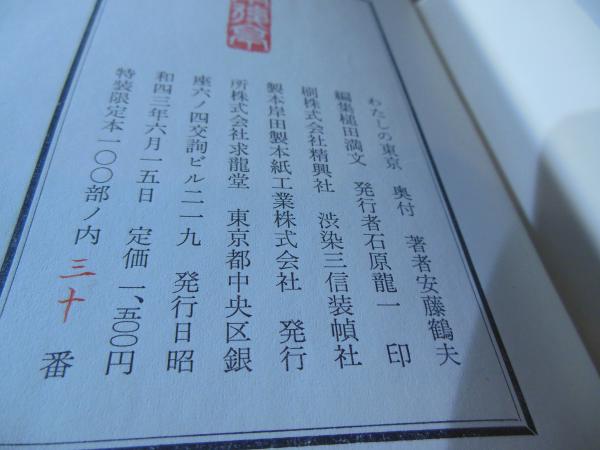 わたしの東京 奥付 著者安藤鶴夫
編集槌田満文 発行者石原龍一 印
刷株式会社精興社 渋染三信装幀社
製本岸田製本紙工業株式会社 発行
所株式会社求龍堂 東京都中央区銀
座六ノ四交詢ビル二一九 発行日昭
和四三年六月一五日 定価一、五〇〇円
特装限定本一〇〇部ノ内 三十 番